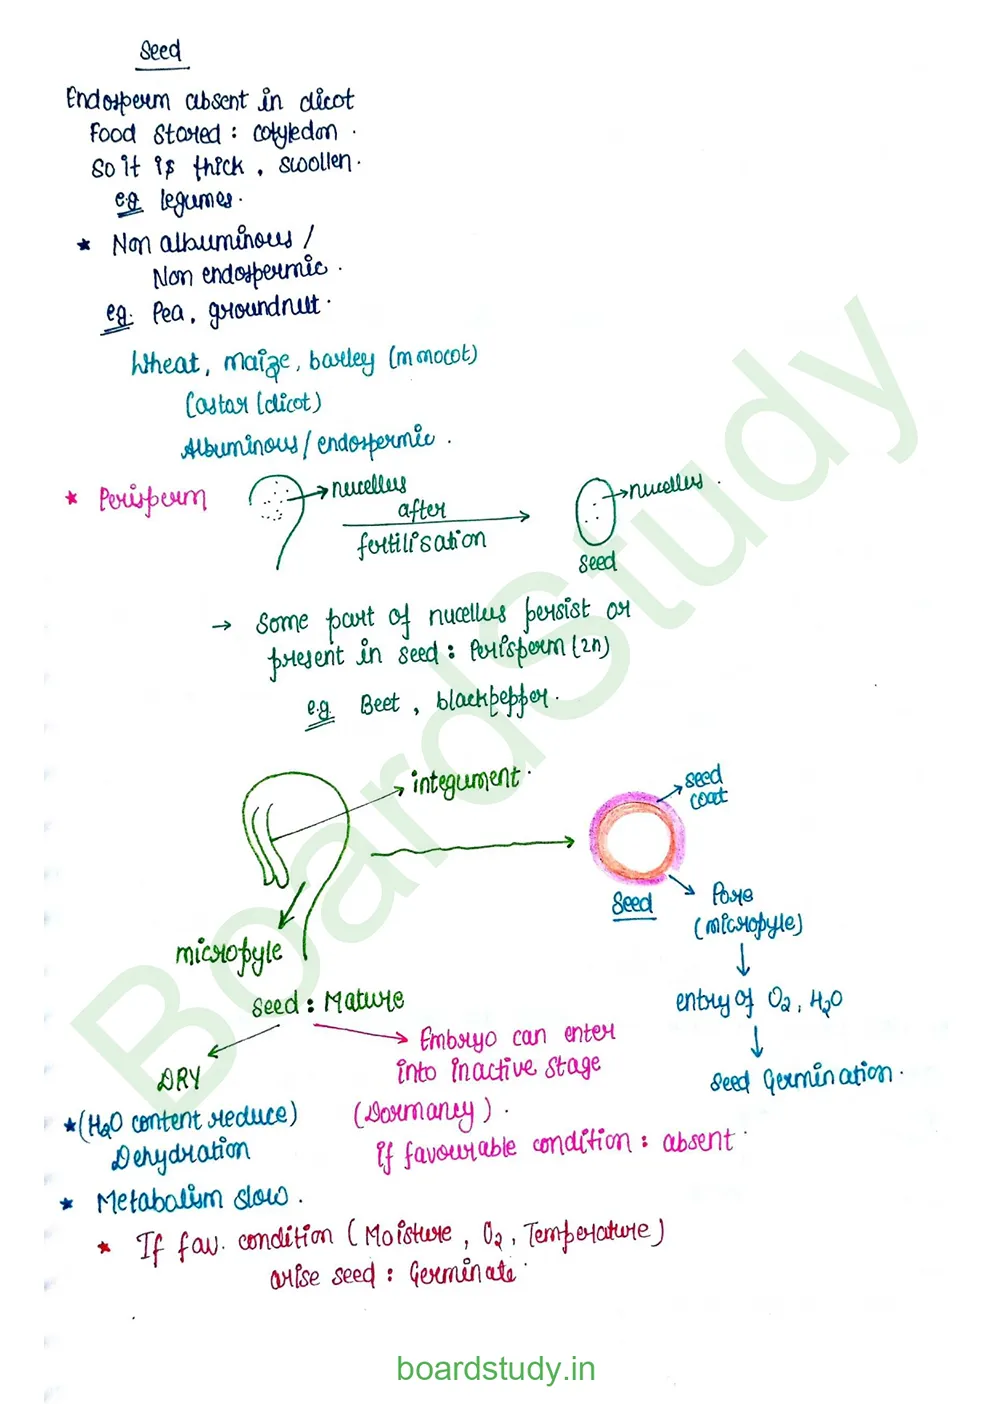 Seed
Endosperm absent in dicot
Food Stored : cotyledon .
So it is thick , swollen .
e.g legumes .
★ Non albuminous /
Non endospermic .
eg. Pea , groundnut .
Wheat , maize , barley (m mocot)
Castor (dicot)
Albuminous / endospermic .
★ Perisperm
nucellus
after
fertilisation
nucellus .
seed
→ Some part of nucellus persist or
present in seed : Perisperm (2n)
e.g. Beet , blackpepper .
integument .
seed
coat
micropyle
Seed
Pore
(micropyle)
entry of O2 , H2O
Seed Germination .
Seed : Mature
DRY
★ (H2O content reduce)
Dehydration
Embryo can enter
into inactive stage
(Dormancy) .
if favourable condition : absent .
★ Metabolism slow .
★ If fav. condition (Moisture , O2 , Temperature)
arise seed : Germinate .
BoardStudy
boardstudy.in